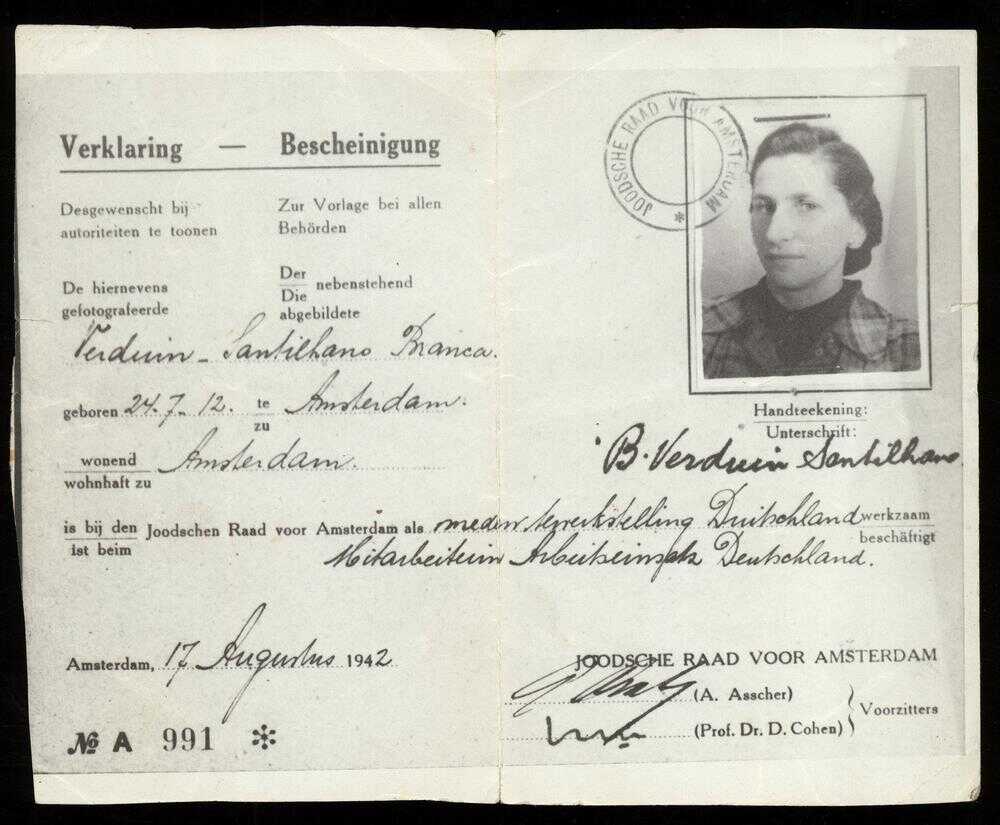 Verklaring — Bescheinigung
Desgewenscht bij autoriteiten te toonen
Zur Vorlage bei allen Behörden
De hiernevens gefotografeerde
Der
Die
nebenstehend abgebildete
Verduin - Santilhano Branca.
geboren 24.7-12. te Amsterdam.
zu
wonend Amsterdam.
wohnhaft zu
is bij den Joodschen Raad voor Amsterdam als medew. tewerkstelling Duitschland werkzaam
ist beim Mitarbeiterin Arbeitseinsatz Deutschland. beschäftigt
Amsterdam, 17 Augustus 1942
№ A 991 *
JOODSCHE RAAD VOOR AMSTERDAM *
Handteekening:
Unterschrift:
B. Verduin Santilhano
JOODSCHE RAAD VOOR AMSTERDAM
(A. Asscher)
(Prof. Dr. D. Cohen)
Voorzitters